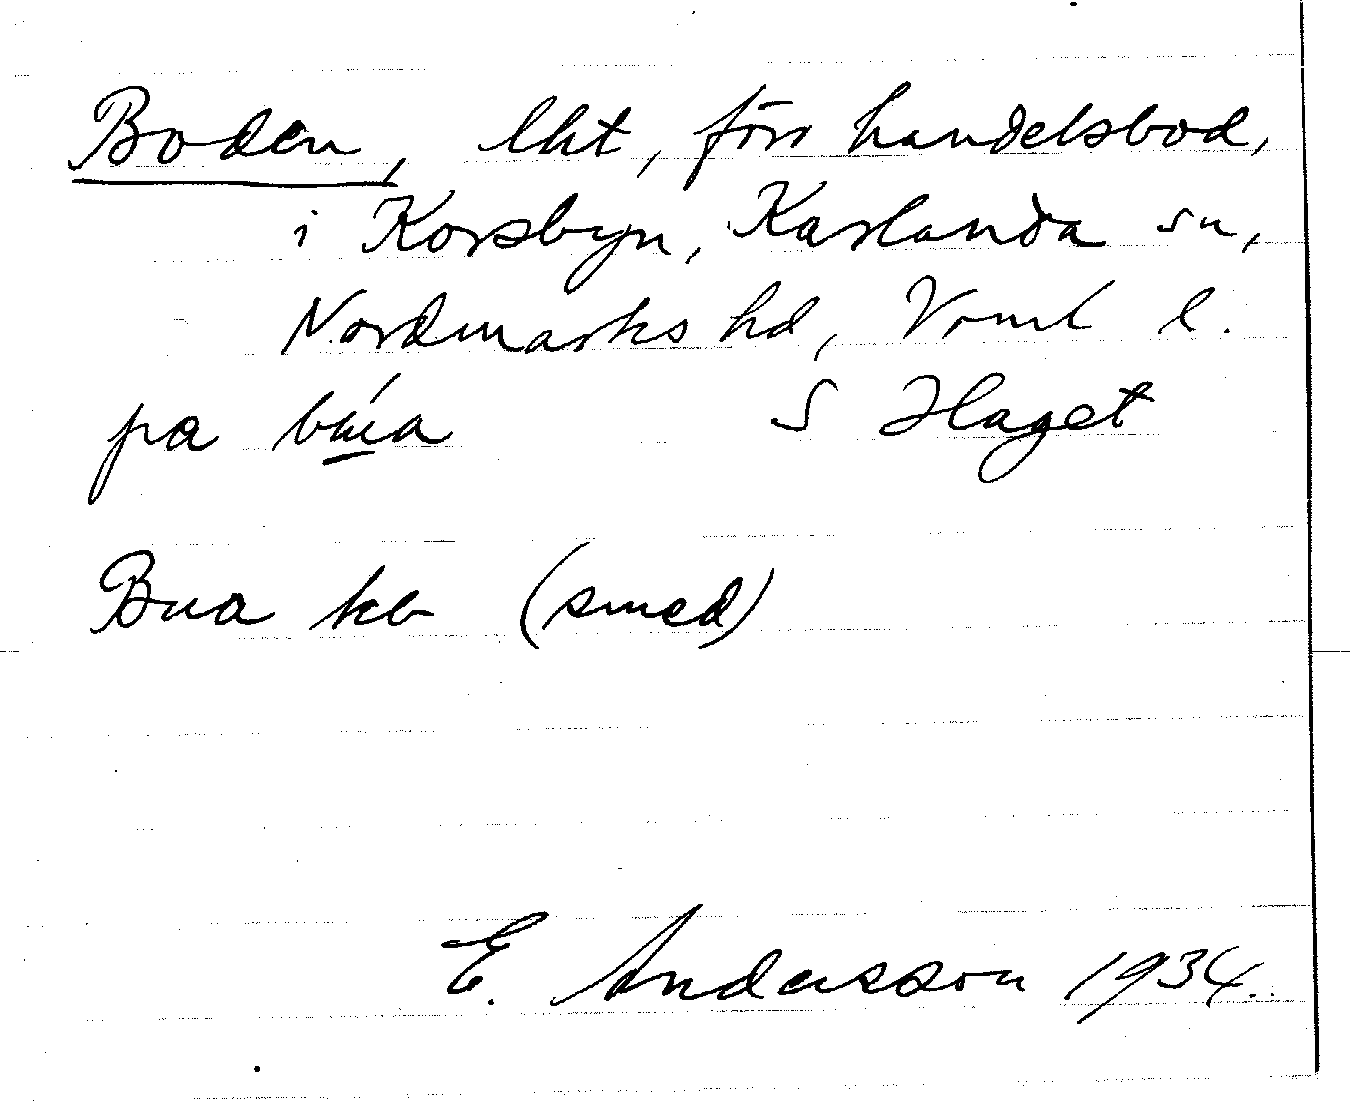 Boden, lht, förr handelsbod,
i Korsbyn, Karlanda sn,
Nordmarks hd, Vrml l.
pa búa S Haget
Bua kb (smed)
E. Andersson 1934.